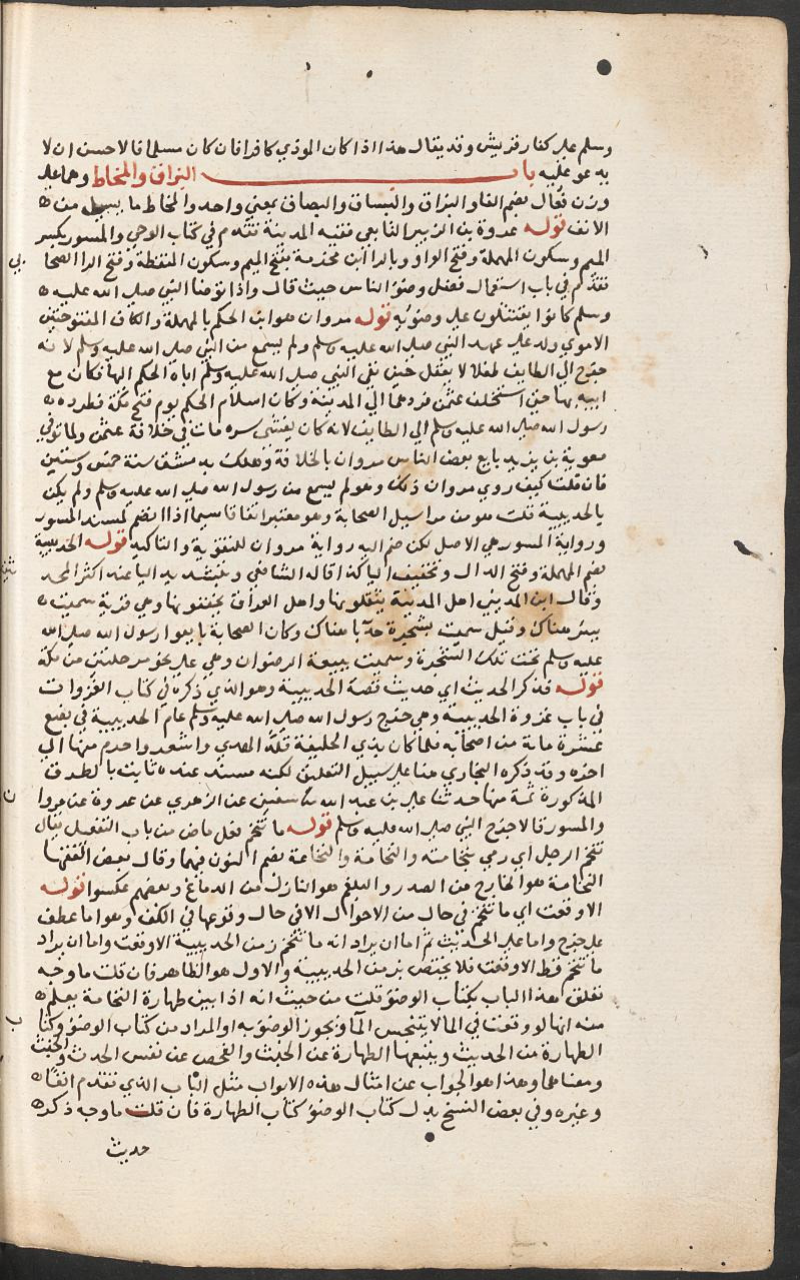 وسلم علي كفار قريش وقد يقال هذا اذا كان الموذي كافرا فان كان مسلما فالاحسن ان لا
يدعو عليه باب البزاق والمخاط وهما علي
وزن فعال بضم الفا والبزاق والبساق والبصاق بمعني واحد والمخاط ما يسيل من
الانف قوله عروة بن الزبير التابعي فقيه المدينة تقدم في كتاب الوحي والمسور بكسر
الميم وسكون المهملة وفتح الواو وبالرا ابن مخرمة بفتح الميم وسكون المنقطة وفتح الرا الصحابي
تقدم في باب استعمال فضل وضوء الناس حيث قال واذا توضا النبي صلي الله عليه
وسلم كانوا يقتتلون علي وضوئه قوله مروان هو ابن الحكم بالمهملة والكاف المفتوحتين
الاموي ولد علي عهد النبي صلي الله عليه وسلم ولم يسمع من النبي صلي الله عليه وسلم لانه
خرج الي الطايف طفلا لا يعقل حين نفي النبي صلي الله عليه وسلم اباه الحكم اليها فكان مع
ابيه بها حتي استخلف عثمن فردهما الي المدينة وكان اسلام الحكم يوم فتح مكة فطرده
رسول الله صلي الله عليه وسلم الي الطايف لانه كان يفشي سره مات في خلافة عثمن ولما توفي
معوية بن يزيد بايع بعض الناس مروان بالخلافة وهلك بدمشق سنة خمس وستين
فان قلت كيف روي مروان ذلك وهو لم يسمع من رسول الله صلي الله عليه وسلم ولم يكن
بالحديبية قلت هو من مراسيل الصحابة وهو معتبر اتفاقا سيما اذا انضم لمسند المسور
ورواية المسور هي الاصل لكن ضم اليه رواية مروان للتقوية والتاكيد قوله الحديبية
بضم المهملة وفتح الدال وتخفيف اليا كذا قاله الشافعي وبتشديد اليا عند اكثر المحد
وقال ابن المديني اهل المدينة يثقلونها واهل العراق يخففونها وهي قرية سميت
ببئر هناك وقيل سميت بشجرة حدبا هناك وكان الصحابة بايعوا رسول الله صلي الله
عليه وسلم تحت تلك الشجرة وسميت ببيعة الرضوان وهي علي نحو مرحلتين من مكة
قوله فذكر الحديث اي حديث قصة الحديبية وهو الذي ذكره في كتاب الغزوات
في باب غزوة الحديبية وهي خرج رسول الله صلي الله عليه وسلم عام الحديبية في بضع
عشرة مائة من اصحابه فلما كان بذي الحليفة قلد الهدي واشعر واحرم منها الي
اخره وقد ذكره البخاري هنا علي سبيل التعليق لكنه مسند عنده ثابت بالطرق
المذكورة ثمة منها حدثنا علي بن عبد الله ثنا سفين عن الزهري عن عروة عن مروا
والمسور قالا خرج النبي صلي الله عليه وسلم قوله ما تنخم فعل ماض من باب التفعل يقال
تنخم الرجل اي رمي بنخامته والنخامة والنخاعة بضم النون فيهما وقال بعض الفقها
النخامة هو الخارج من الصدر والبلغم هو النازل من الدماغ وبعضهم عكسوا قوله
الا وقعت اي ما تنخم في حال من الاحوال الا في حال وقوعها في الكف وهو اما عطف
علي خرج واما علي الحديث ثم اما ان يراد انه ما تنخم زمن الحديبية الا وقعت واما ان يراد
ما تنخم قط الا وقعت فلا يختص بزمن الحديبية والاول هو الظاهر فان قلت ما وجه
تعلق هذا الباب بكتاب الوضوء قلت من حيث انه اذا بين طهارة النخامة يعلم
منه انها لو وقعت في الما لا يتنجس الما ويجوز الوضوء به او المراد من كتاب الوضوء وكتا
الطهارة من الحديث ويتبعها الطهارة عن الخبث والفحص عن نفس الحدث والخبث
ومعناهما وهذا هو الجواب عن امثال هذه الابواب مثل الباب الذي تقدم انفا
وغيره وفي بعض النسخ بدل كتاب الوضوء كتاب الطهارة فان قلت ما وجه ذكر
حديث